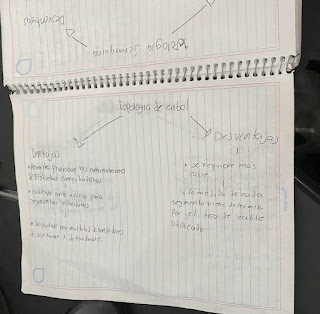 Desventajas
topologia jerarquica
topologia de arbol
Ventajas
Desventajas
• permite priorizar las comunicaciones
de distintas computadoras
• cableado punto a punto para
segmentos individuales
• soportado por multitud de vendedores
de software y de hardware.
• se requiere mas
cable.
• la medida de cada
segmento viene determinada
por el tipo de cable
utilizado